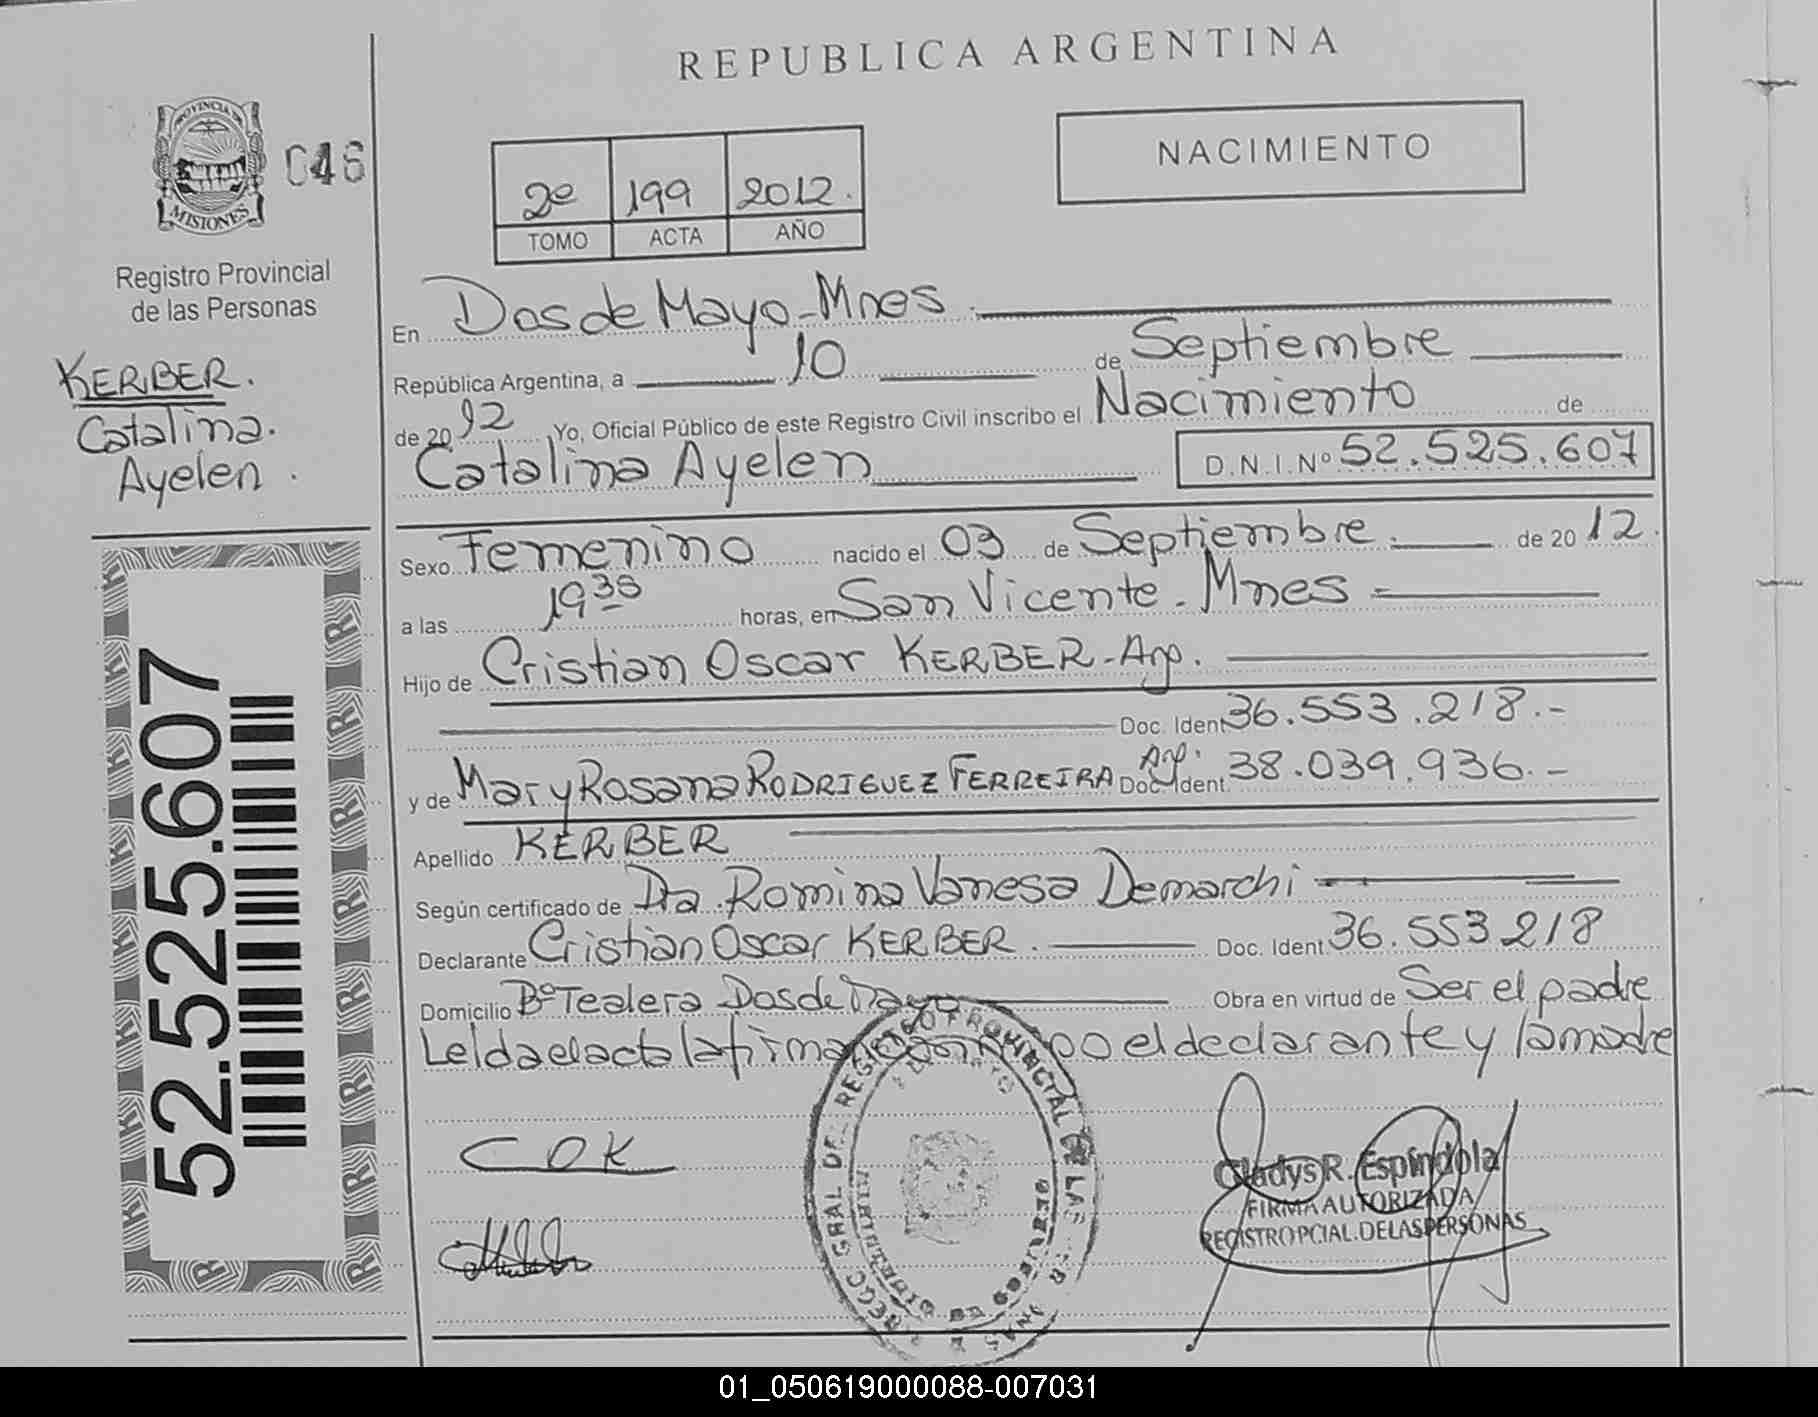 REPUBLICA ARGENTINA
PROVINCIA DE
MISIONES
046
Registro Provincial
de las Personas
KERBER.
Catalina.
Ayelen.
52.525.607
2º 199 2012.
TOMO ACTA AÑO
NACIMIENTO
En Dos de Mayo - Mnes
República Argentina, a 10 de Septiembre
de 2012 Yo, Oficial Público de este Registro Civil inscribo el Nacimiento de
Catalina Ayelen D.N.I. Nº 52.525.607
Sexo Femenino nacido el 03 de Septiembre. de 2012.
a las 19 35 horas, en San Vicente - Mnes
Hijo de Cristian Oscar KERBER - Arg.
Doc. Ident 36.553.218.-
y de Mary Rosana RODRIGUEZ FERREIRA Arg. Doc. Ident. 38.039.936.-
Apellido KERBER
Según certificado de Dra. Romina Vanesa Demarchi
Declarante Cristian Oscar KERBER. Doc. Ident. 36.553 218
Domicilio Bº Tealera Dos de Mayo Obra en virtud de Ser el padre
Leida el acta la firma conmigo el declarante y la madre
COK
REGISTRO PROVINCIAL DE LAS
Gladys R. Espíndola
FIRMA AUTORIZADA
REGISTRO PCIAL. DE LAS PERSONAS
01_050619000088-007031